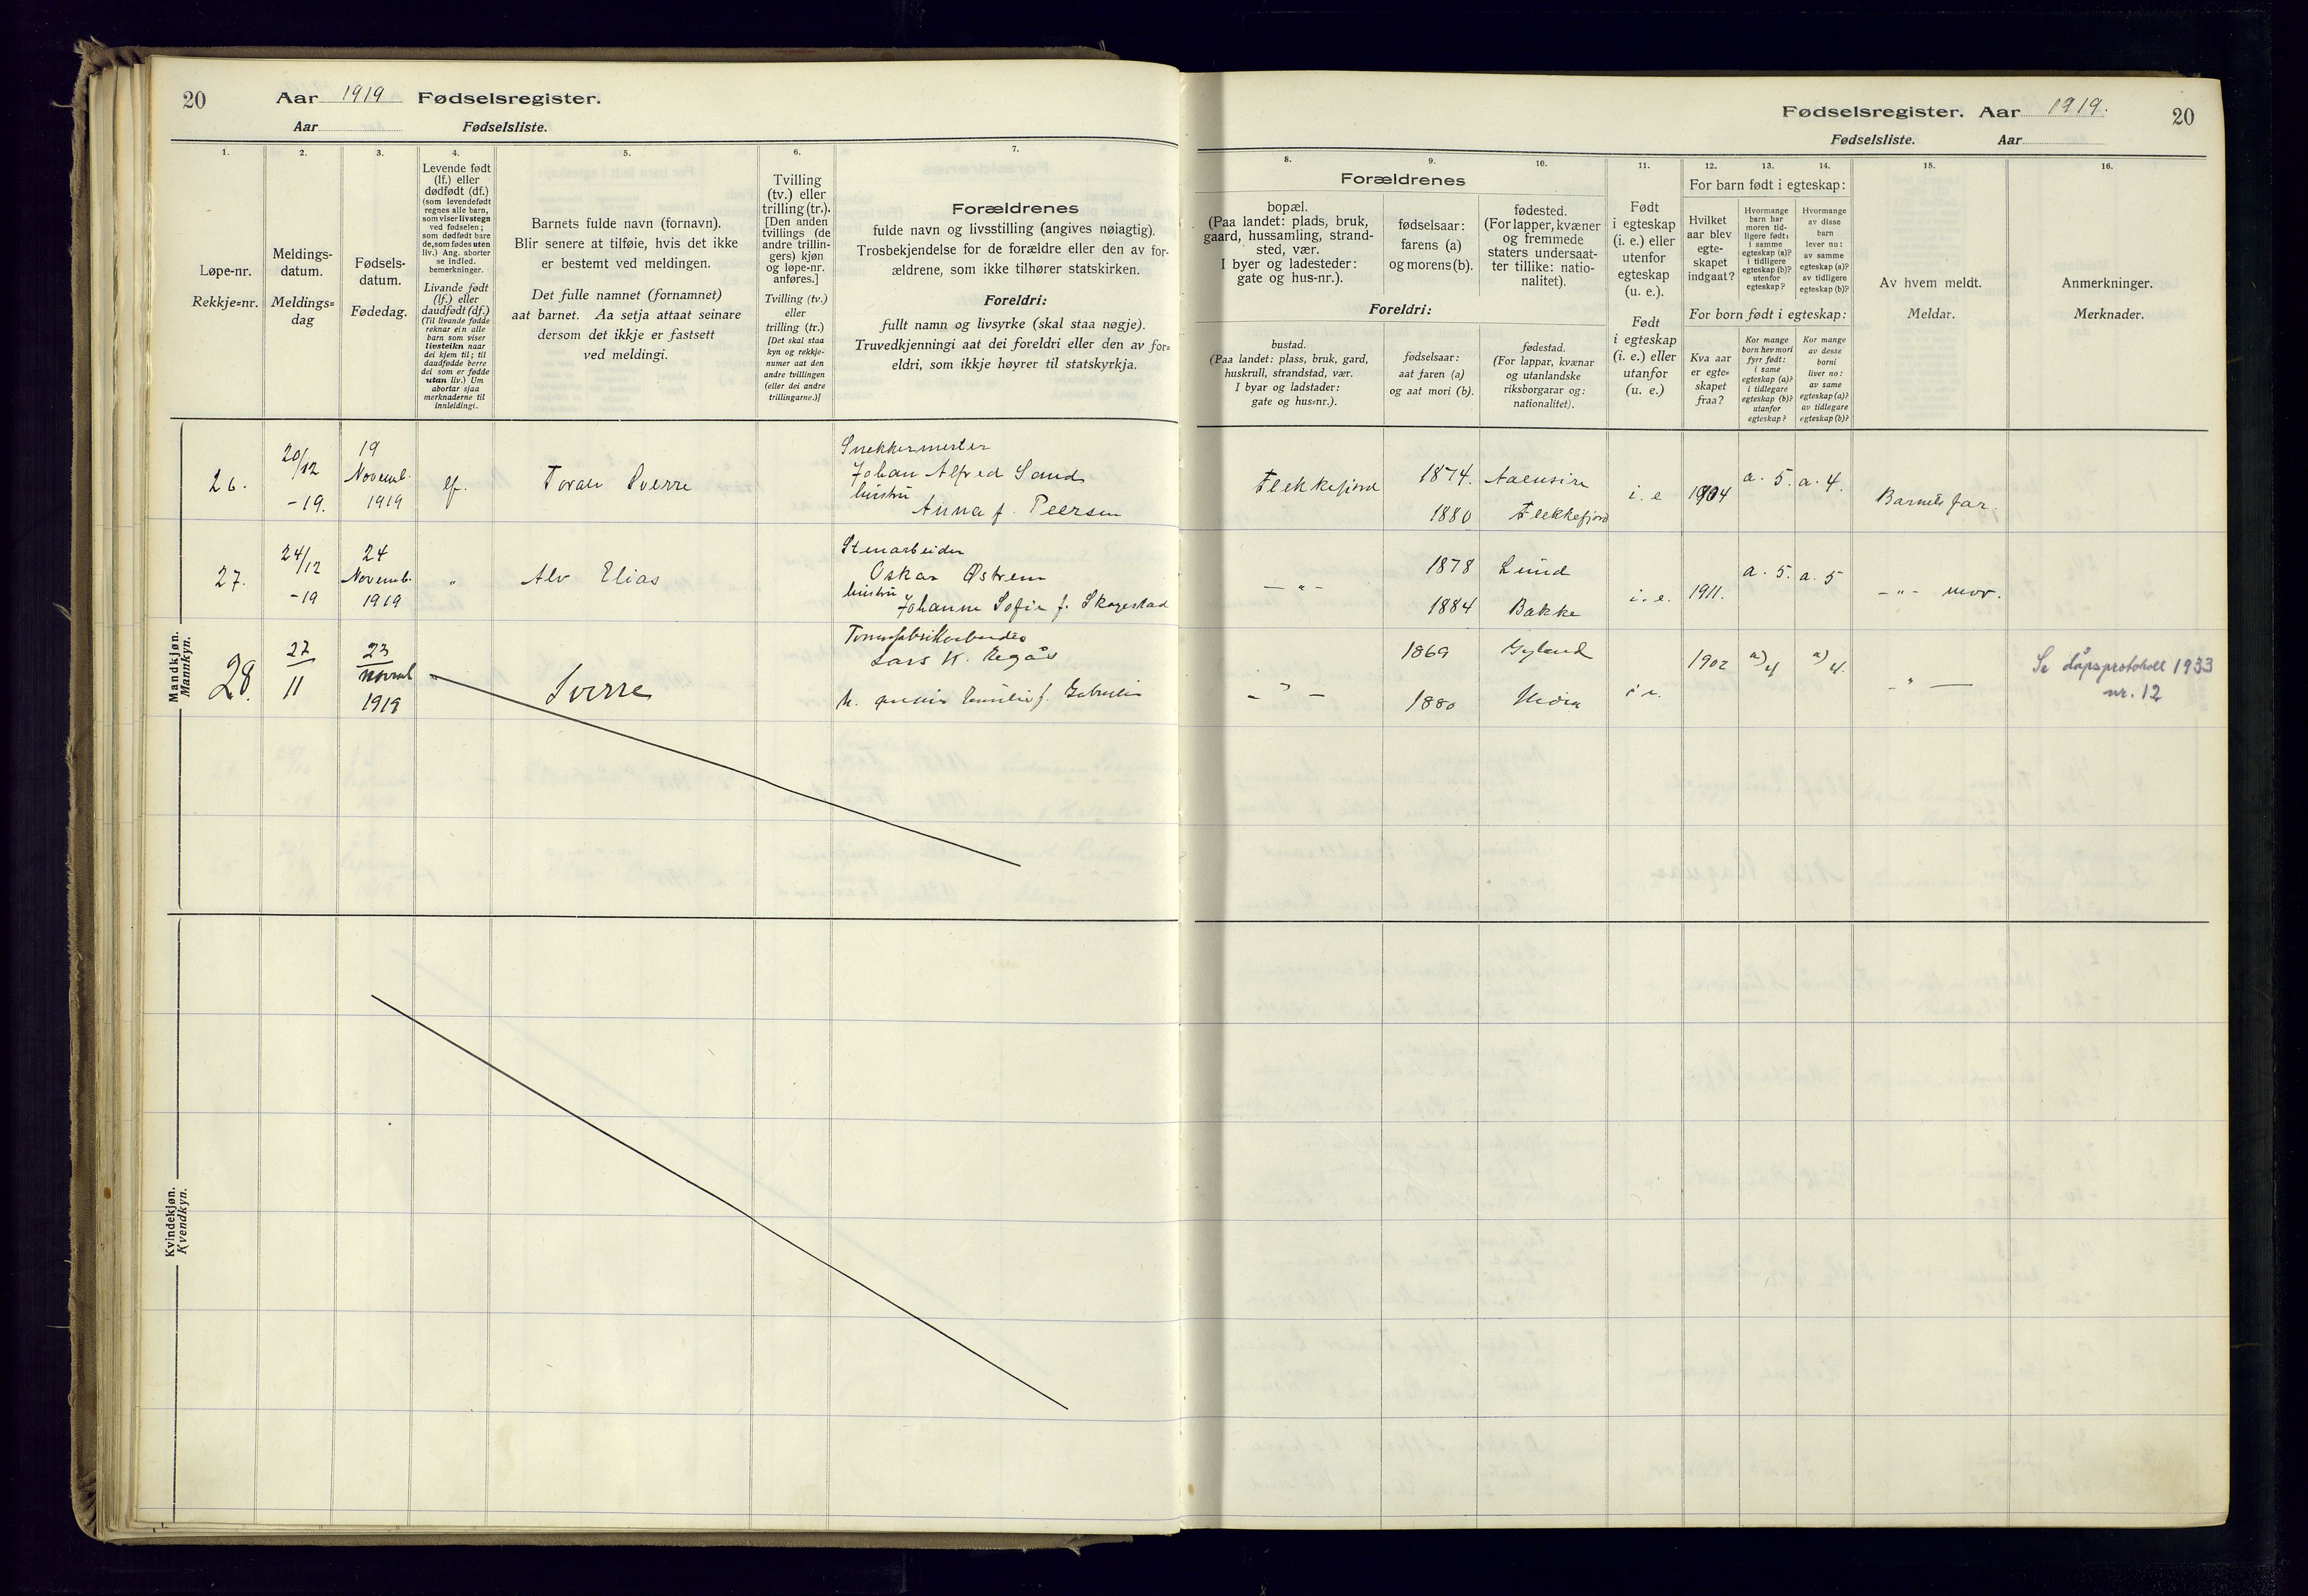 20
Aar 1919 Fødselsregister.
Aar Fødselsliste.
1.
2.
3.
4.
5.
6.
7.
Løpe-nr.
Rekkje=nr.
Meldings-
datum.
Meldings=
dag
Fødsels-
datum.
Fødedag.
Levende født
(lf.) eller
dødfødt (df.)
(som levendefødt
regnes alle barn,
som viser livstegn
ved fødselen;
som dødfødt bare
de, som fødes uten
liv.) Ang. aborter
se indled.
bemerkninger.
Livande født
(lf.) eller
daudfødt (df.)
(Til livande fødde
reknar ein alle
barn som viser
livsteikn naar
dei kjem til; til
daudfødde berre
dei som er fødde
utan liv.) Um
abortar sjaa
merknaderne til
innleidingi.
Barnets fulde navn (fornavn).
Blir senere at tilføie, hvis det ikke
er bestemt ved meldingen.
Det fulle namnet (fornamnet)
aat barnet. Aa setja attaat seinare
dersom det ikkje er fastsett
ved meldingi.
Tvilling
(tv.) eller
trilling (tr.).
[Den anden
tvillings (de
andre trillin-
gers) kjøn
og løpe-nr.
anføres.]
Tvilling (tv.)
eller
trilling (tr.)
[Det skal staa
kyn og rekkje-
numer aat den
andre tvillingen
(eller dei andre
trillingarne.)]
Forældrenes
fulde navn og livsstilling (angives nøiagtig).
Trosbekjendelse for de forældre eller den av for-
ældrene, som ikke tilhører statskirken.
Foreldri:
fullt namn og livsyrke (skal staa nøgje).
Truvedkjenningi aat dei foreldri eller den av for=
eldri, som ikkje høyrer til statskyrkja.
Mandkjøn.
Mannkyn.
26.
20/12
-19.
19
Novemb.
1919
lf.
Toralv Sverre
Snekkermester
Johan Alfred Sand
hustru
Anna f. Peersen
27.
24/12
-19
24
Novemb.
1919
"
Alv Elias
Stenarbeider
Oskar Østrem
hustru
Johanne Sofie f. Skogestad
28.
27
11
23
novemb
1919
Sverre
Lars K.
h.
Kvindekjøn.
Kvendkyn.
Fødselsregister. Aar 1919.
20
Fødselsliste. Aar
8.
9.
10.
11.
12.
13.
14.
15.
16.
Forældrenes
bopæl.
(Paa landet: plads, bruk,
gaard, hussamling, strand-
sted, vær.
I byer og ladesteder:
gate og hus-nr.).
fødselsaar:
farens (a)
og morens (b).
fødested.
(For lapper, kvæner
og fremmede
staters undersaat-
ter tillike: natio-
nalitet).
Foreldri:
bustad.
(Paa landet: plass, bruk, gard,
huskrull, strandstad, vær.
I byar og ladstader:
gate og hus=nr.).
fødselsaar:
aat faren (a)
og aat mori (b).
fødestad.
(For lappar, kvænar
og utanlandske
riksborgarar og:
nationalitet).
Født
i egteskap
(i. e.) eller
utenfor
egteskap
(u. e.).
Født
i egteskap
(i. e.) eller
utanfor
(u. e.)
For barn født i egteskap:
Hvilket
aar blev
egte-
skapet
indgaat?
Hvormange
barn har
moren tid-
ligere født:
i samme
egteskap (a)?
i tidligere
egteskap (b)?
utenfor
egteskap?
Hvormange
av disse
barn
lever nu:
av samme
egteskap (a)?
av tidligere
egteskap (b)?
For born født i egteskap:
Kva aar
er egte=
skapet
fraa?
Kor mange
born hev mori
fyrr født:
i same
egteskap (a)?
i tidlegare
egteskap (b)?
utanfor
egteskap?
Kor mange
av desse
borni
liver no:
av same
egteskap (a)?
av tidlegare
egteskap (b)?
Av hvem meldt.
Meldar.
Anmerkninger.
Merknader.
Flekkefjord
1874.
1880
Aaensire
Flekkefjord
i. e
1904
a. 5.
a. 4.
Barnets far.
- " -
1878
1884
Lund
Bakke
i. e.
1911.
a. 5.
a. 5
- " - mor.
- " -
1869
1880
Gyland
Hidra
i e.
1902
a) 4
a) 4.
- " -
Se dåpsprotokoll 1933
nr. 12